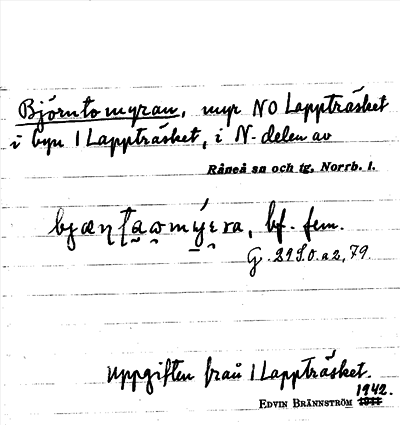 Björntomyran, myr NO Lappträsket
i byn 1 Lappträsket, i N-delen av
Råneå sn och tg, Norrb. l.
bf. fem.
G. 21 S.O. a 2, 79.
Uppgiften från 1 Lappträsket.
1942.
EDVIN BRÄNNSTRÖM 1941